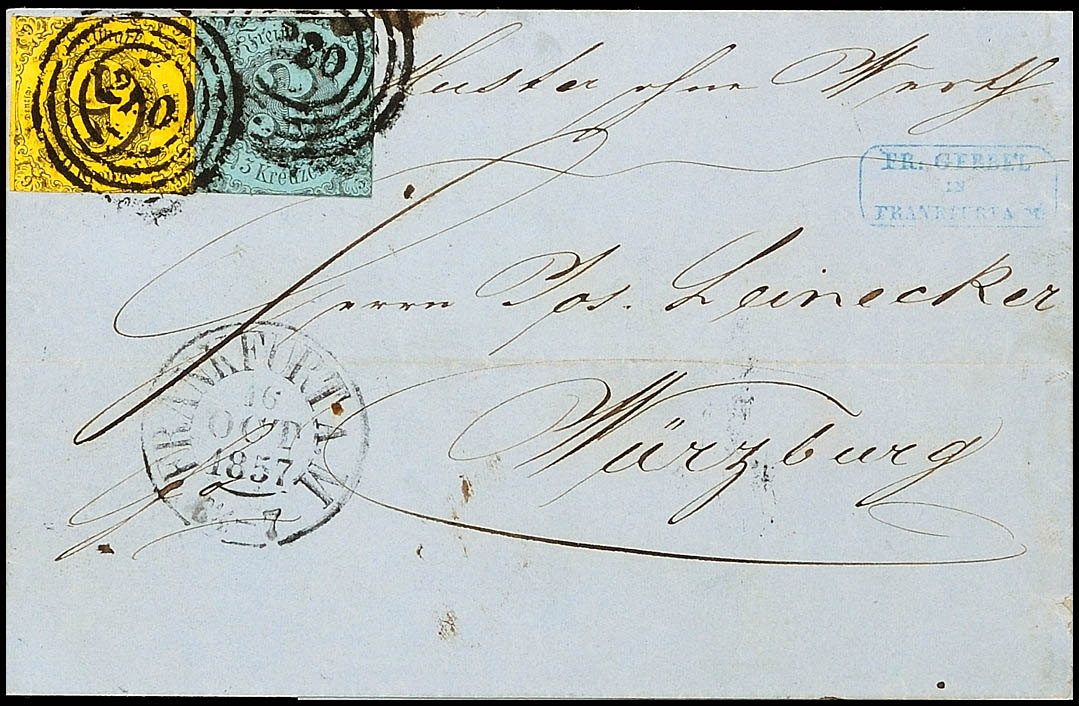 220
220
Frei
3 Kreuzer
Muster ohne Werth
FR. GERBEL
IN
FRANKFURT A M.
Herrn Jos. Leinecker
Würzburg
FRANKFURT A. M.
16
OCT
1857
7